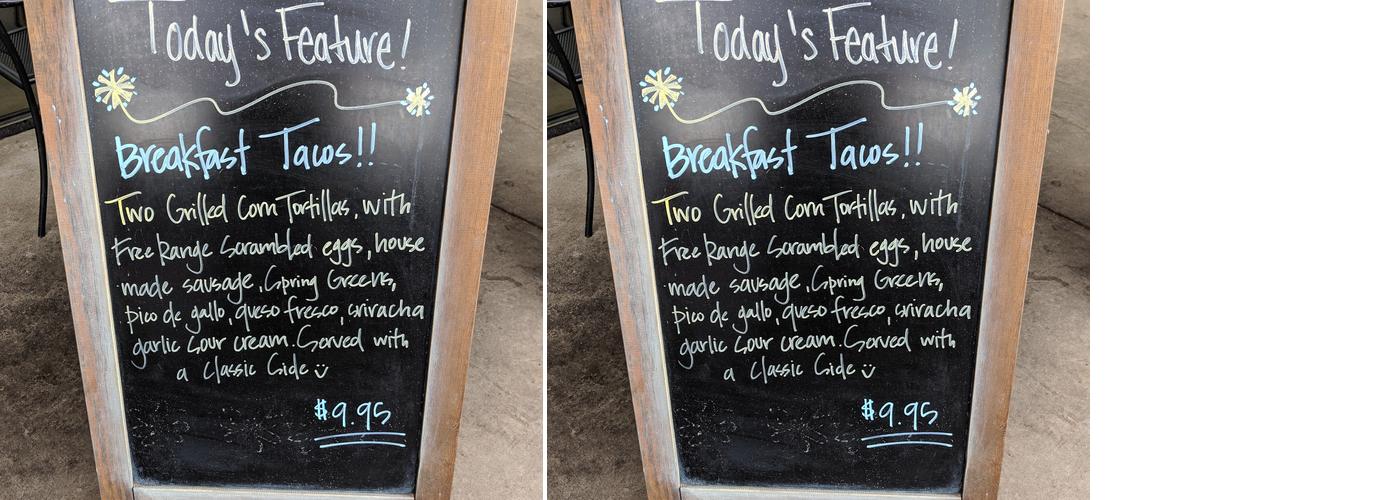 Today's Feature!
Breakfast Tacos!!
Two Grilled Corn Tortillas, with
Free Range Scrambled eggs, house
made sausage, Spring Greens,
pico de gallo, queso fresco, sriracha
garlic Sour cream. Served with
a Classic Side
$9.95
Today's Feature!
Breakfast Tacos!!
Two Grilled Corn Tortillas, with
Free Range Scrambled eggs, house
made sausage, Spring Greens,
pico de gallo, queso fresco, sriracha
garlic Sour cream. Served with
a Classic Side
$9.95